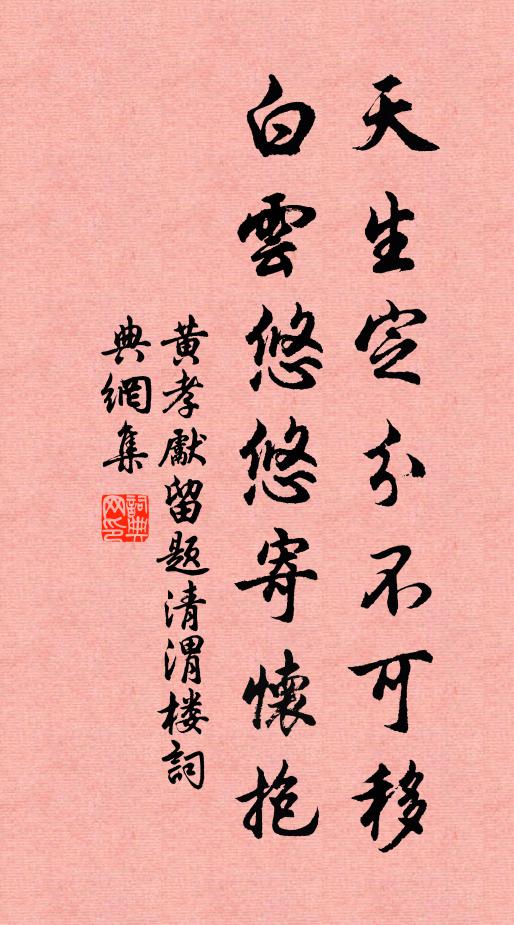 天生定分不可移
白雲悠悠寄懷抱
黄孝獻留题清渭楼詞
典網集
詞典网印